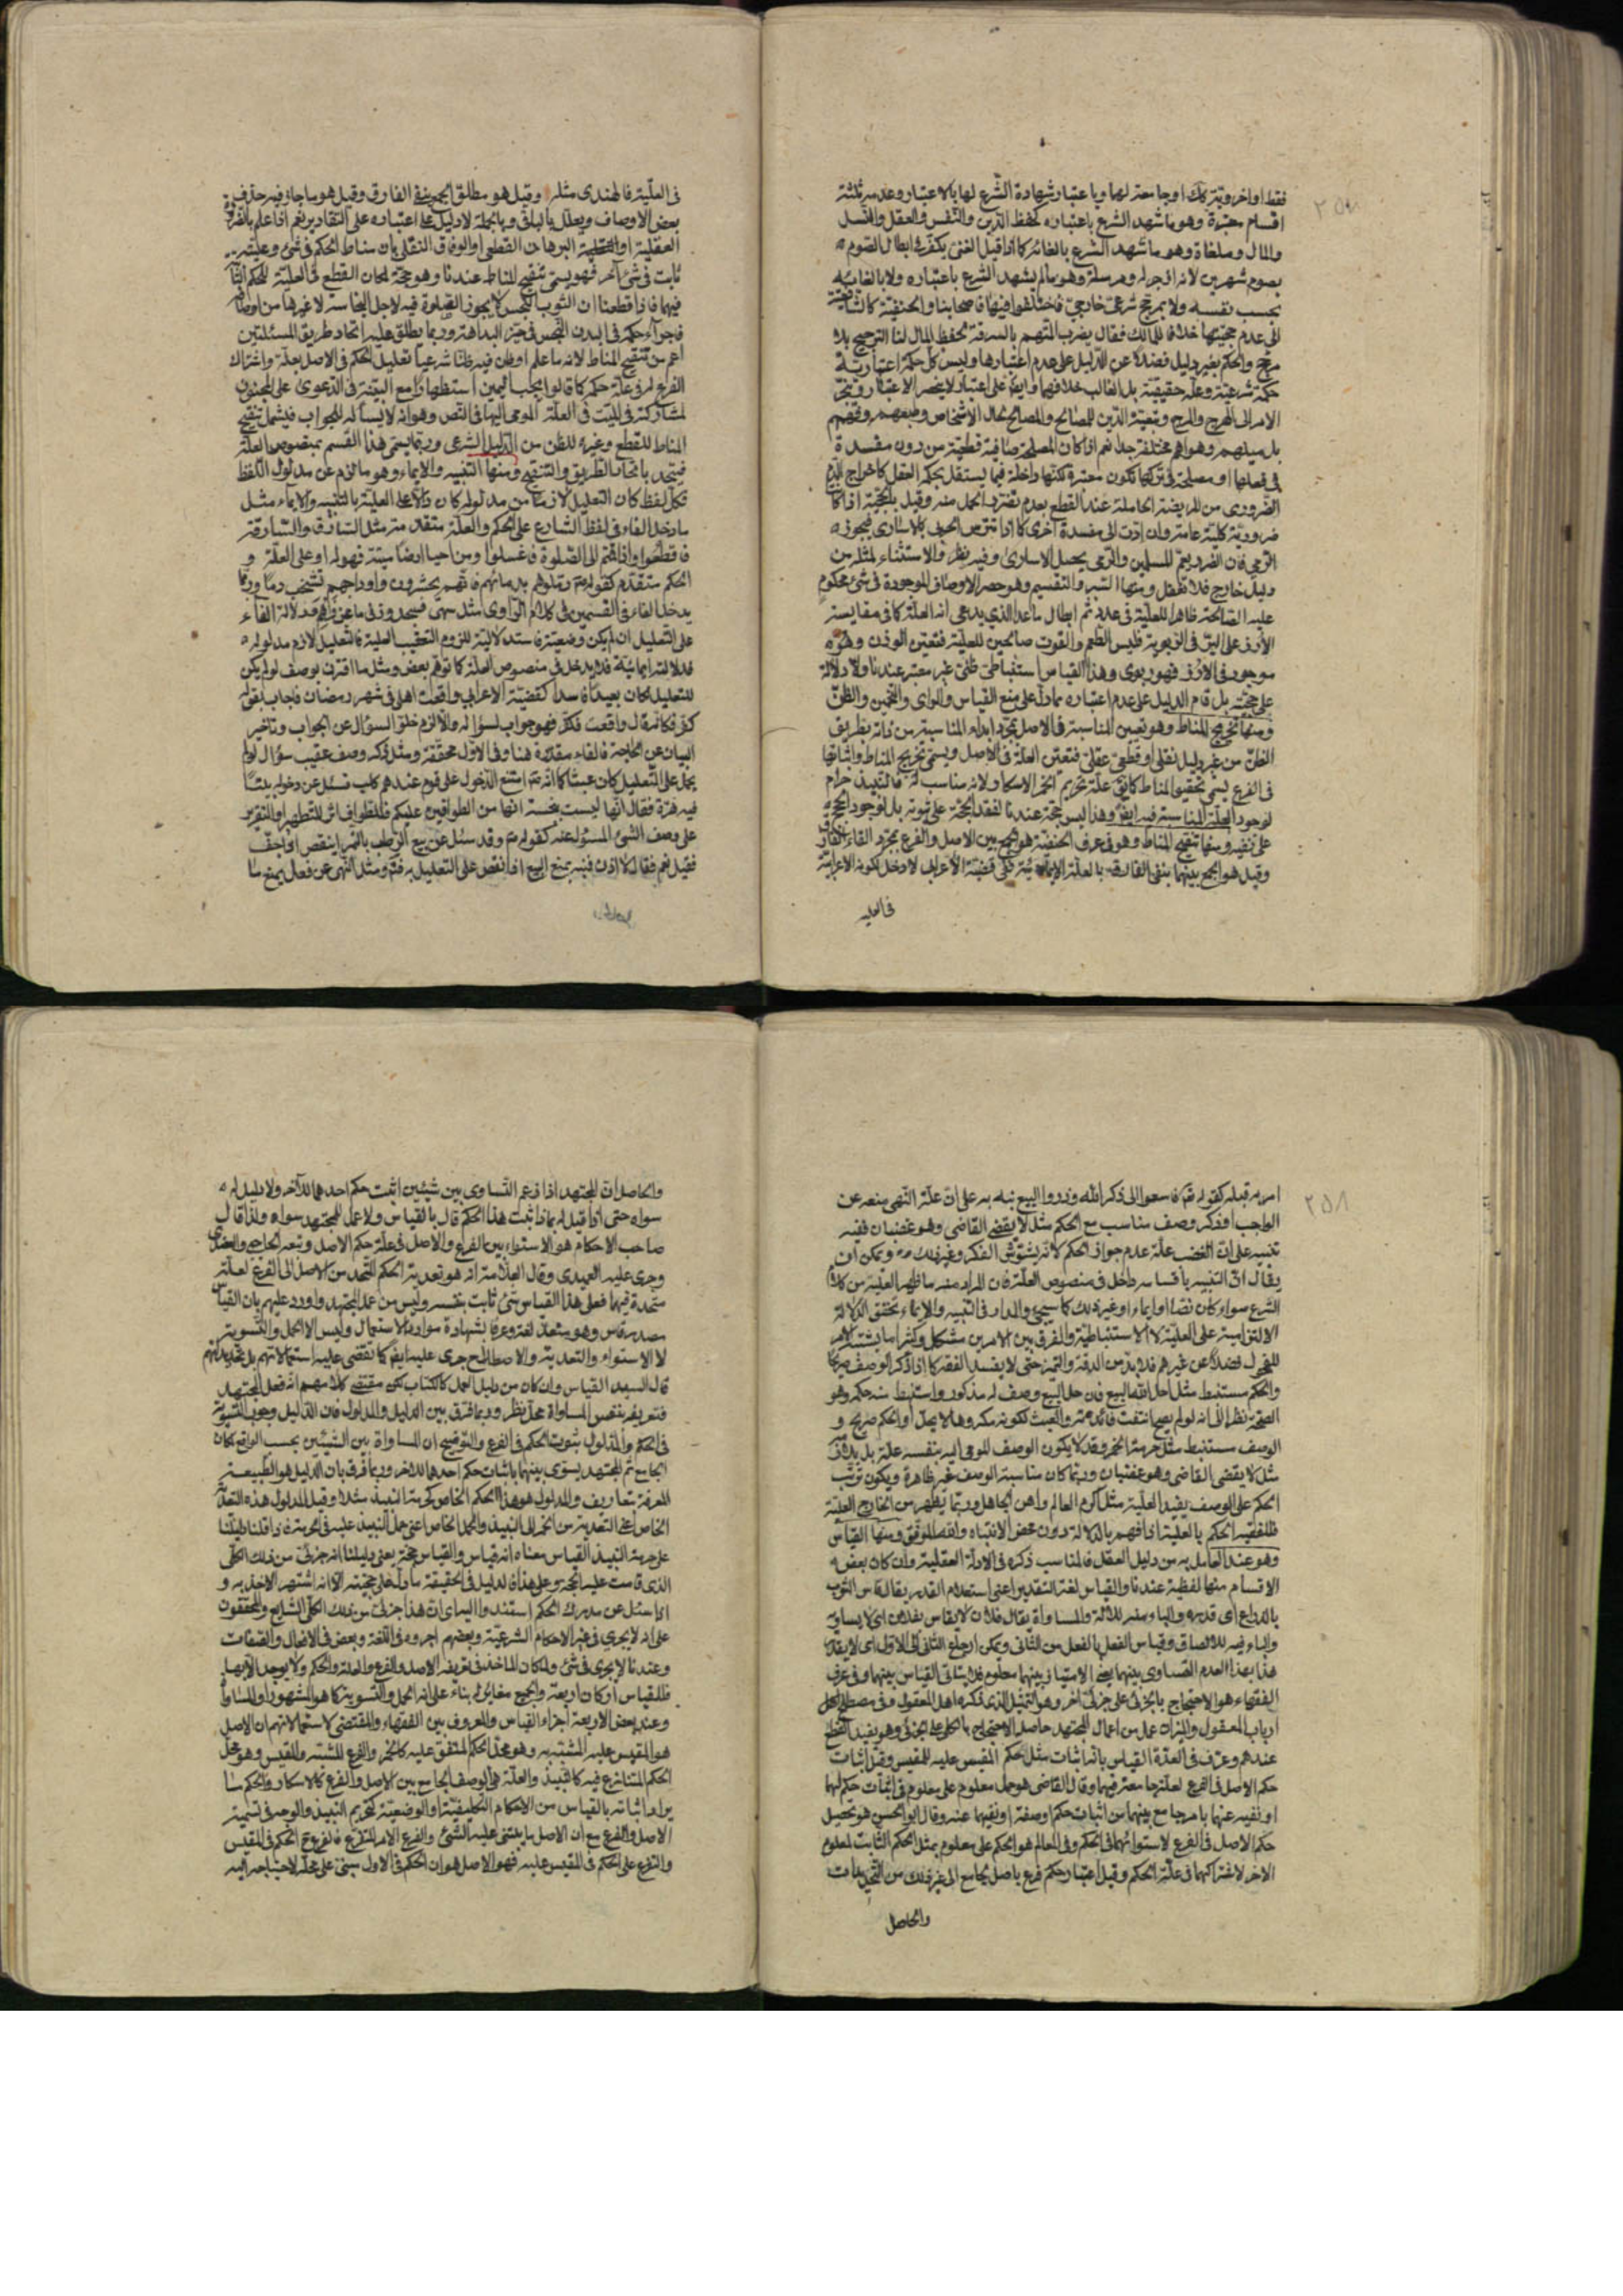 فقط او اخروية كك او جامعة لهما وباعتبار شهادة الشرع لها بالاعتبار وعدمه ثلثة
اقسام معتبرة وهو ما شهد الشرع باعتباره كحفظ الدين والنفس والعقل والنسل
والمال وملغاة وهو ما شهد الشرع بالغائه كما اذا قيل الغنى يكفر فى ابطال الصوم
بصوم شهرين لانه ازجر له ومرسلة وهو ما لم يشهد الشرع باعتباره ولا بالغائه
بحسب نفسه ولا بمرجح شرعى خارجى فاختلفوا فيها فاصحابنا والحنفية كالشافعية
الى عدم حجيتها خلافا لمالك فقال يضرب المتهم بالسرقة لحفظ المال لنا الترجيح بلا
مرجح والحكم بغير دليل فضلا عن الدليل على عدم اعتبارها وليس كل حكمة اعتبارية
حكمة شرعية وعلة حقيقية بل الغالب خلافهما وايض على اعتبار لا ينحصر الاعتبار وينجر
الامر الى الهرج والمرج وتبعية الدين للمصالح والمصالح لحال الاشخاص وطبعهم وفهمهم
بل ميلهم وهواهم مختلفة جدا نعم اذا كان المصلحة صافية قطعية من دون مفسدة
فى فعلها او مصلحة فى تركها تكون معتبرة لكنها داخلة فيما يستقل بحكم العقل كاخراج الدم
الضرورى من المريضة الحاملة عند القطع بعدم تضرر الحمل منه وقيل بالحجية اذا كا
ضرورية كلية عامة وان ادت الى مفسدة اخرى كما اذا تترس الحربى بالاسارى فيجوز
الرمى فان الضرر يعم المسلمين والرمى يحصل الاسارى وفيه نظر والاستثناء لمثله من
دليل خارج فلا تغفل ومنها السبر والتقسيم وهو حصر الاوصاف الموجودة فى شئ محكوم
عليه الصالحة ظاهرا للعلية فى عدد ثم ابطال ما عدا الذى يدعى انه العلة كما فى مقايسة
الارز على البر فى الربوية فليس الطعم والقوت صالحين للعلية فتعين الوزن وهو
موجود فى الارز فهو ربوى وهذا القياس استنباطى ظنى غير معتبر عندنا ولا دلالة
على حجيته بل قام الدليل على عدم اعتباره مما دل على منع القياس والراى والتخمين والظن
ومنها تخريج المناط وهو تعيين المناسبة فى الاصل بمجرد ابداء المناسبة من ذاته بطريق
الظن من غير دليل نقلى او قطعى عقلى فتعين العلة فى الاصل ويسمى تخريج المناط واثباتها
فى الفرع يسمى تحقيق المناط كما يق علة تحريم الخمر الاسكار لانه مناسب له فالنبيذ حرام
لوجود العلة المناسبة فيه ايض وهذا ليس حجة عندنا لفقد الحجة على ثبوته بل لوجود الحجة
على نفيه ومنها تنقيح المناط وهو فى عرف الحنفية هو الجمع بين الاصل والفرع بمجرد الغاء الفارق
وقيل هو الجمع بينهما بنفى الفارق بالعلة الايمائية ففى قضية الاعرابى لا دخل لكونه الاعرابية
فى العلية
فى العلية فالهندى مثله وقيل هو مطلق الجمع بنفى الفارق وقيل هو ما جاز فيه حذف
بعض الاوصاف ويعلل بالباقى وبالجملة لا دليل على اعتباره على التقادير نعم اذا علم بالضرورة
العقلية او البرهان القطعى او الوفاق النقلى بان مناط الحكم فى شئ وعليته
ثابت فى شئ آخر فهو يسمى تنقيح المناط عندنا وهو حجة لمكان القطع فى العلية للحكم الثا
فيهما فاذا قطعنا ان الثوب النجس لا يجوز الصلوة فيه لاجل النجاسة لا غيرها من اوصافه
فاجراء حكمه فى البدن النجس فى حيز البداهة وربما يطلق عليه اتحاد طريق المسئلتين
اعم من تنقيح المناط لانه ما علم او ظن فيه ظنا شرعيا تعليل الحكم فى الاصل بعلة واشتراك
الفرع له فى علة حكمه كما قالوا يجب اليمين استظهارا مع البينة فى الدعوى على المجنون
لمشاركته فى الميت فى العلة المومى اليها فى النص وهو انه لا لسان له للجواب فيشمل تنقيح
المناط للقطع وغيره للظن من الدليل الشرعى وربما يسمى هذا القسم بمنصوص العلة
فيتحد باتحاد الطريق والتنقيح ومنها التنبيه والايماء وهو ما لزم عن مدلول اللفظ
فكل لفظ كان التعليل لازما من مدلوله كان دالا على العلية بالتنبيه والايماء مثل
ما دخل الفاء فى لفظ الشارع على الحكم والعلة متقدمة مثل السارق والسارقة
فاقطعوا واذا قمتم الى الصلوة فاغسلوا ومن احيا ارضا ميتة فهو له او على العلة و
الحكم متقدم كقوله زملوهم بدمائهم فانهم يحشرون واوداجهم تشخب دما وربما
يدخل الفاء فى القسمين فى كلام الراوى مثل سهى فسجد وزنى ماعز فرجم فدلالة الفاء
على التعليل ان لم يكن وضعية فاستدلالية للزوم التعقيب العلية فالتعليل لازم مدلوله
فدلالته ايمائية فلا يدخل فى منصوص العلة كما توهم بعض ومثل ما اقترن بوصف لو لم يكن
للتعليل لكان بعيدا فاسدا كقضية الاعرابى واقعت اهلى فى شهر رمضان فاجاب بقوله
كفر فكانه قال واقعت فكفر فهو جواب لسؤاله والا لزم خلو السؤال عن الجواب وتاخير
البيان عن الحاجة فالفاء مقدرة هنا وفى الاول محققة ومثل ذكره وصف عقيب سؤال لو لم
يحمل على التعليل كان عبثا كما انه امتنع الدخول على قوم عندهم كلب فسئل عن دخوله بيتا
فيه هرة فقال انها ليست بنجسة انها من الطوافين عليكم فللطواف اثر للتطهير او للتقرير
على وصف الشئ المسئول عنه كقوله وقد سئل عن بيع الرطب بالتمر اينقص اذا جف
فقيل نعم فقال لا اذن فنبه بمنع البيع اذا نقص على التعليل به فتم ومثل النهى عن فعل يمنع ما
امر به قبله كقوله فاسعوا الى ذكر الله وذروا البيع نبه به على ان علة النهى منعه عن
الواجب او ذكر وصف مناسب مع الحكم مثل لا يقضى القاضى وهو غضبان ففيه
تنبيه على ان الغضب علة عدم جواز الحكم لانه يشوش الفكر وغير ذلك ويمكن ان
يقال ان التنبيه باقسامه داخل فى منصوص العلة فان المراد منه ما ظهر العلية من كلام
الشرع سواء كان نصا او ايماء او غير ذلك كما سيجئ والمدار فى التنبيه والايماء تحقق الدلالة
الالتزامية على العلية لا الاستنباطية والفرق بين الامرين مشكل وكثيرا ما يشتبه الامر
للفحول فضلا عن غيرهم فلا بد من الدقة والتميز حتى لا يفسد الفقه كما اذا ذكر الوصف صريحا
والحكم مستنبط مثل احل الله البيع فان حل البيع وصف له مذكور واستنبط منه حكمه وهو
الصحة نظرا الى انه لو لم يصح انتفت فائدته والعبث لكونه مكروها لا يحل او الحكم صريح و
الوصف مستنبط مثل حرمت الخمر وقد لا يكون الوصف المومى اليه بنفسه علة بل بلازمه
مثل لا يقضى القاضى وهو غضبان وربما كان مناسبة الوصف غير ظاهرة ويكون ترتب
الحكم على الوصف يفيد العلية مثل اكرم العالم واهن الجاهل وربما يظهر من الخارج العلية
فللفقيه الحكم بالعلية اذا فهم بالدلالة دون محض الانتباه والله الموفق ومنها القياس
وهو عند العامل به من دليل العقل فالمناسب ذكره فى الادلة العقلية وان كان بعض
الاقسام منها لفظية عندنا والقياس لغة التقدير اعنى استعلام القدر يقال قاس الثوب
بالذراع اى قدره والباء فيه للالة والمساواة يقال فلان لا يقاس بفلان اى لا يساويه
والباء فيه للالصاق وقياس الفعل بالفعل من الثانى ويمكن ارجاع الثانى الى الاول اى لا يقدر
هذا بهذا لعدم التساوى بينهما يعنى الامتياز بينهما معلوم فلا يتاتى القياس بينهما وفى عرف
الفقهاء هو الاحتجاج بالجزئى على جزئى آخر وهو التمثيل الذى ذكره اهل المعقول وفى مصطلح
ارباب المعقول والميزان عمل من اعمال المجتهد حاصل الاحتجاج بالكلى على الجزئى وهو يفيد القطع
عندهم وعرف فى العدة القياس بانه اثبات مثل حكم المقيس عليه للمقيس وقيل اثبات
حكم الاصل فى الفرع لعلة جامعة فيهما وقال القاضى هو حمل معلوم على معلوم فى اثبات حكم لهما
او نفيه عنهما بامر جامع بينهما من اثبات حكم او صفة او نفيهما عنه وقال ابو الحسين هو تحصيل
حكم الاصل فى الفرع لاستوائهما فى الحكم وفى المعالم هو الحكم على معلوم بمثل الحكم الثابت لمعلوم
الاخر لاشتراكهما فى علة الحكم وقيل اعتبار حكم فرع باصل بجامع الى غير ذلك من التحديدات
والحاصل
والحاصل ان المجتهد اذا زعم التساوى بين شيئين اثبت حكم احدهما للآخر ولا دليل له
سواه حتى اذا قيل له بماذا ثبت هذا الحكم قال بالقياس ولا عمل للمجتهد سواه ولذا قال
صاحب الاحكام هو الاستواء بين الفرع والاصل فى علة حكم الاصل وتبعه الحاجبى والعضدى
وجرى عليه العميدى وقال العلامة انه هو تعدية الحكم المتحد من الاصل الى الفرع لعلة
متحدة فيهما فعلى هذا القياس شئ ثابت بنفسه وليس من عمل المجتهد واورد عليهم بان القياس
مصدر قاس وهو متعد لغة وعرفا بشهادة موارد الاستعمال وليس الا الحمل والتسوية
لا الاستواء والتعدية والاصطلاح جرى عليه ايض كما تقضى عليه استعمالاتهم بل تحديداتهم
قال السيد القياس وان كان من دليل العمل كالكتاب لكن مقتضى كلامهم انه فعل المجتهد
فتعريفه بنفس المساواة محل نظر وربما فرق بين الدليل والمدلول فان الدليل وجوب التسوية
فى الحكم والمدلول ثبوت الحكم فى الفرع والتوضيح ان المساواة بين الشيئين بحسب الواقع لمكان
الجامع ثم المجتهد يسوى بينهما باثبات حكم احدهما للآخر وربما فرق بان الدليل هو الطبيعة
المعرفة بتعاريف والمدلول هو هذا الحكم الخاص كحرمة النبيذ مثلا وقيل المدلول هذه التعدية
الخاص اعنى التعدية من الخمر الى النبيذ والحمل الخاص اعنى حمل النبيذ عليه فى الحرمة فاذا قلنا دليلنا
على حرمة النبيذ القياس معناه انه قياس والقياس حجة يعنى دليلنا انه جزئى من ذلك الكلى
الذى قامت عليه الحجة وعلى هذا فالدليل فى الحقيقة ما دل على حجيته الا انه اشتهر الاخذ به و
اذا سئل عن مدرك الحكم استند واليه اى ان هذا جزئى من ذلك الكلى الشايع والمحققون
على انه لا يجرى فى غير الاحكام الشرعية وبعضهم اجروه فى اللغة وبعض فى الافعال والصفات
وعندنا لا يجرى فى شئ ولما كان الماخوذ فى تعريفه الاصل والفرع والعلة والحكم ولا يوجد الا بها
فللقياس اركان اربعة والجميع مغاير له بناء على انه الحمل والتسوية كما هو المشهور او المساواة
وعند بعض الاربعة اجزاء القياس والمعروف بين الفقهاء والمقتضى لاستعمالاتهم ان الاصل
هو المقيس عليه المشتبه به وهو محل الحكم المتفق عليه كالخمر والفرع المشتبه والمقيس وهو محل
الحكم المتنازع فيه كالنبيذ والعلة هى الوصف الجامع بين الاصل والفرع كالاسكار والحكم ما
يراد اثباته بالقياس من الاحكام التكليفية او الوضعية كتحريم النبيذ والوجه فى تسمية
الاصل والفرع مع ان الاصل ما يبتنى عليه الشئ والفرع الامر المتفرع فالفرع الحكم فى المقيس
والتفرع على الحكم فى المقيس عليه فهو الاصل هو ان الحكم فى الاول مبنى على محله لاحتياجه اليه